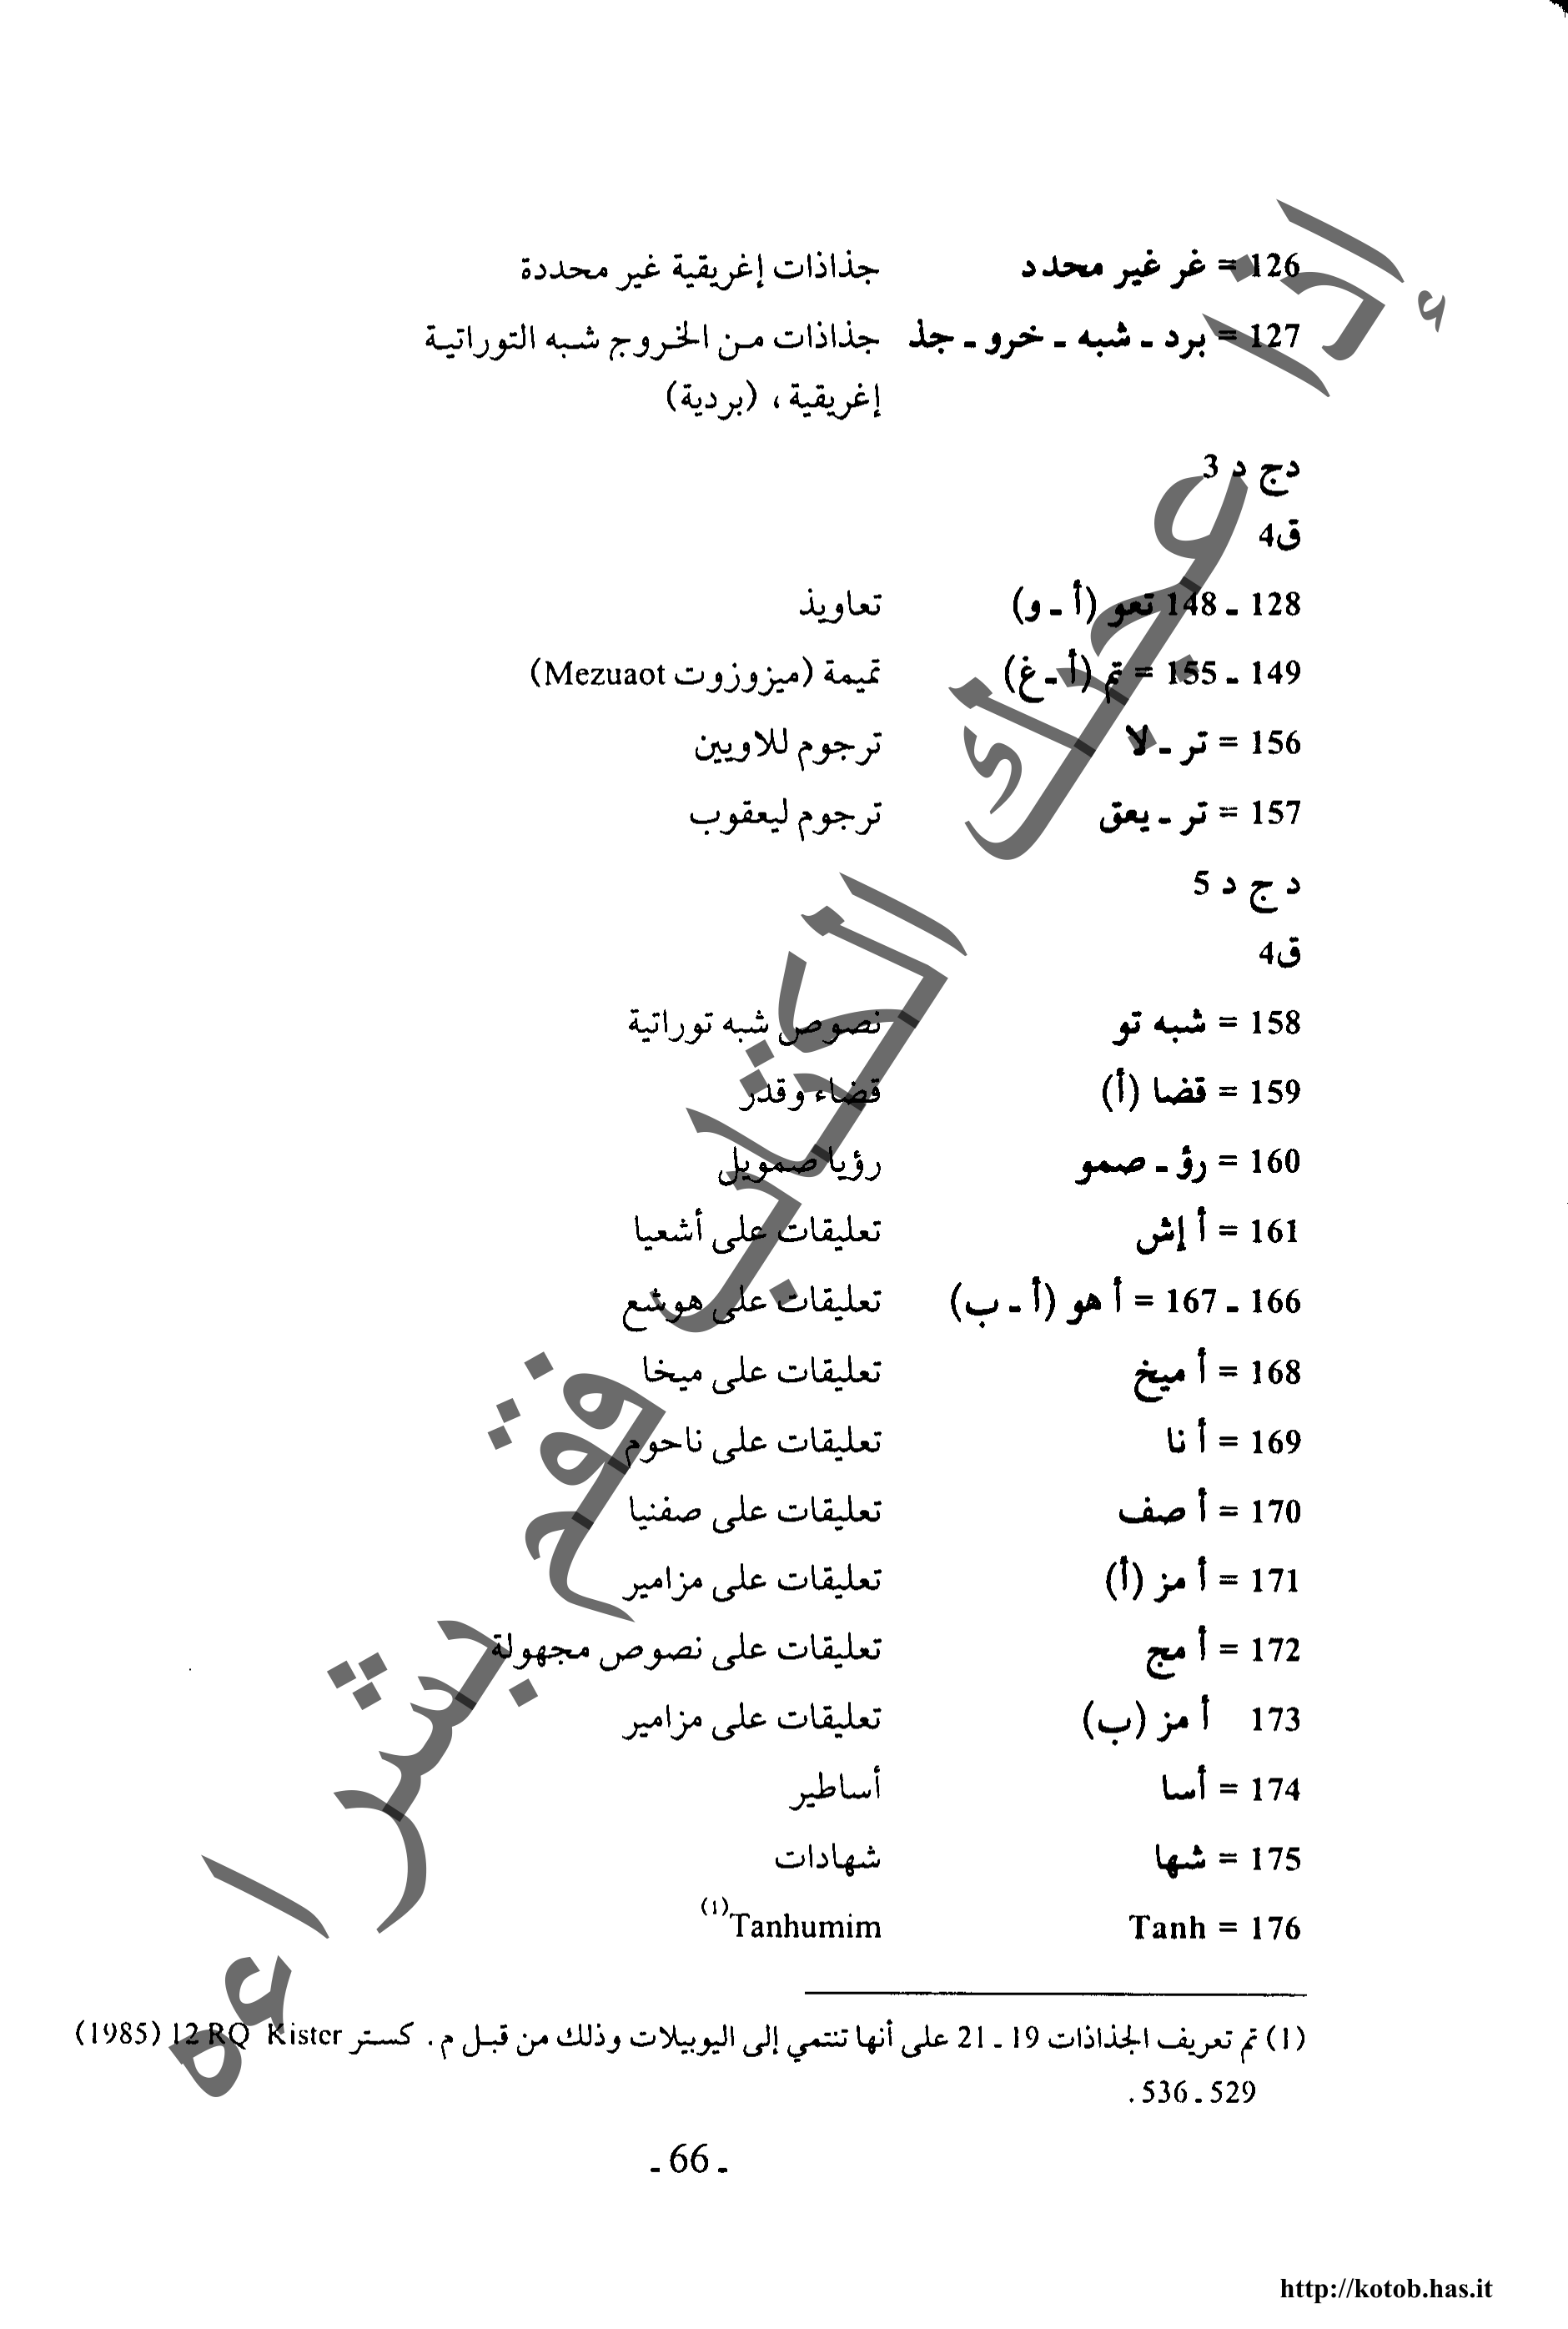 126 = غر غير محدد جذاذات إغريقية غير محددة
127 = برد ـ شبه ـ خرو ـ جذ جذاذات من الخروج شبه التوراتية
إغريقية، (بردية)
دج د 3
ق4
128 ـ 148 تعو (أ ـ و) تعاويذ
149 ـ 155 = تم (أ ـ غ) تميمة (ميزوزوت Mezuaot)
156 = تر ـ لا ترجوم للاويين
157 = تر ـ يعق ترجوم ليعقوب
د ج د 5
ق4
158 = شبه تو نصوص شبه توراتية
159 = قضا (أ) قضاء وقدر
160 = رؤ ـ صمو رؤيا صمويل
161 = أ إش تعليقات على أشعيا
166 ـ 167 = أ هو (أ ـ ب) تعليقات على هوشع
168 = أ ميخ تعليقات على ميخا
169 = أ نا تعليقات على ناحوم
170 = أ صف تعليقات على صفنيا
171 = أ مز (أ) تعليقات على مزامير
172 = أ مج تعليقات على نصوص مجهولة
173 أ مز (ب) تعليقات على مزامير
174 = أسا أساطير
175 = شها شهادات
176 = Tanh Tanhumim(1)
(1) تم تعريف الجذاذات 19 ـ 21 على أنها تنتمي إلى اليوبيلات وذلك من قبل م. كستر Kister RQ 12 (1985)
529 ـ 536.
ـ 66 ـ
إذا أعجبك الكتاب رقة بشراءه
http://kotob.has.it